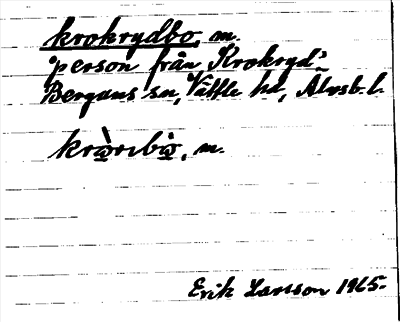 krokrydbo, m.
person från Krokryd,
Bergums sn, Vättle hd, Älvsb. l.
kròͅrıbòͅ, m.
Erik Larsson 1965.